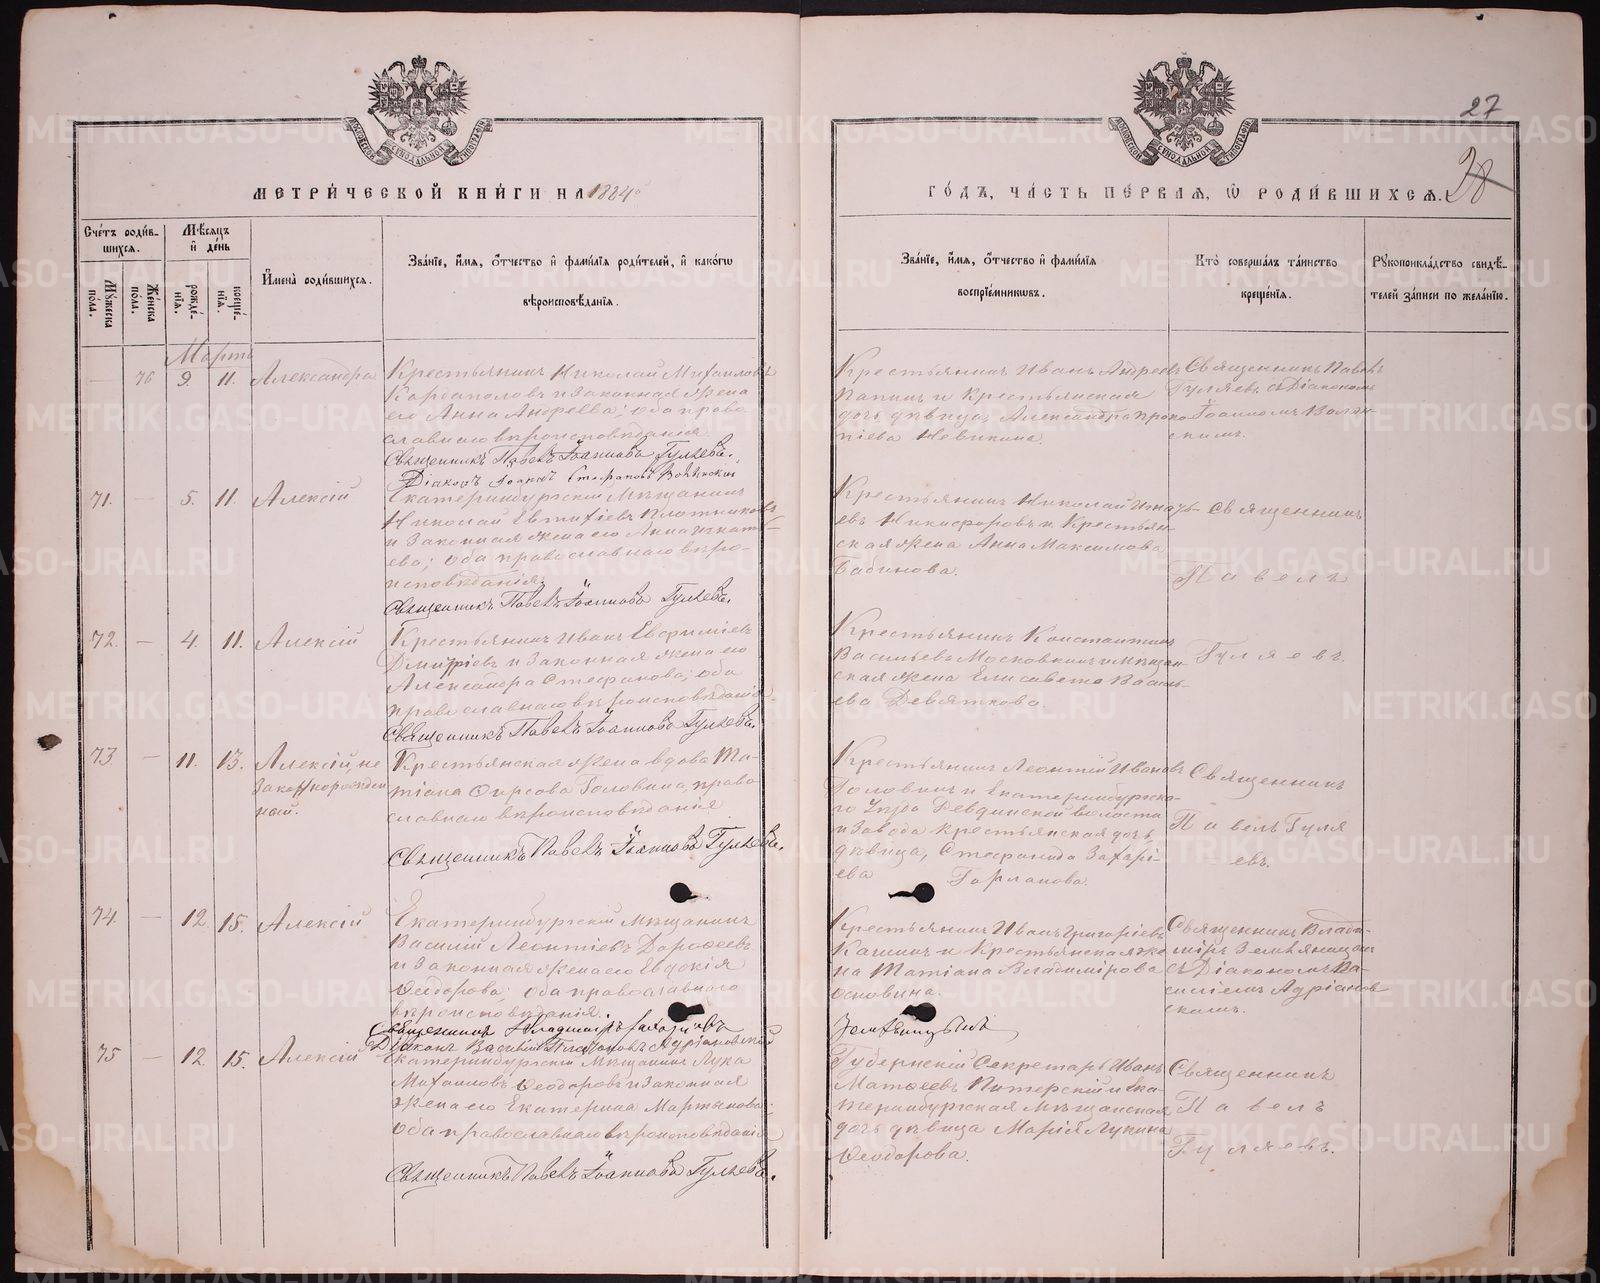 27
28
МЕТРИ́ЧЕСКОЙ КНИ́ГИ НА 1884
ГО́ДЪ, ЧА́СТЬ ПЕ́РВАѦ, Ѡ РОДИ́ВШИХСѦ.
Сче́тъ роди́в-
шихся.
Мѣ́сѧцъ
и҆ де́нь
Му́жеска
пола.
Же́нска
по́ла.
рожде́-
нїѧ.
креще́-
нїѧ.
И҆мена̀ роди́вшихся.
Зва́нїе, и҆́мѧ, ѻ҆́тчество и҆ фами́лїѧ роди́телей, и҆ како́гѡ
вѣроисповѣ́данїѧ.
Зва́нїе, и҆́мѧ, ѻ҆́тчество и҆ фами́лїѧ
воспрїе́мникѡвъ.
Кто̀ соверша́лъ та́инство
креще́нїѧ.
Рꙋкоприкла́дство свидѣ́-
телей за́писи по жела́нїю.
Мартъ
— 76 9. 11. Александра
Крестьянинъ Николай Михаиловъ
Карпаполовъ и законная жена
его Анна Андреева; оба право
славнаго вѣроисповѣданія.
Священникъ Павелъ Іоанновъ Гуляевъ.
Діаконъ Іоаннъ Стефановъ
Крестьянинъ Иванъ Андреевъ
Папинъ и Крестьянская
дочь дѣвица, Александра Проко
піева Невикина.
Священникъ Павелъ
Гуляевъ съ Діакономъ
Іоанномъ
скимъ.
71. — 5. 11. Алексій
Екатеринбургскій Мѣщанинъ
Николай Евтихіевъ Плотниковъ
и законная жена его Анна Игнать-
ева; оба православнаго вѣро-
исповѣданія.
Священникъ Павелъ Іоанновъ Гуляевъ.
Крестьянинъ Николай Игнать-
евъ Никифоровъ и Крестьян-
ская жена Анна Максимова
Бабинова.
Священникъ
Павелъ
72. — 4. 11. Алексій
Крестьянинъ Иванъ Евфиміевъ
Дмитріевъ и законная жена его
Александра Стефанова; оба
православнаго вѣроисповѣданія.
Священникъ Павелъ Іоанновъ Гуляевъ.
Крестьянинъ Константинъ
Васильевъ Московкинъ и мѣщан-
ская жена Елисавета Василь-
ева Девяткова.
Гуляевъ.
73 — 11. 13. Алексій, не
законнорожден
ный.
Крестьянская жена вдова Та-
тіана Фирсова Головина, право
славнаго вѣроисповѣданія
Священникъ Павелъ Іоанновъ Гуляевъ.
Крестьянинъ Леонтій Ивановъ
Головинъ и Екатеринбургска-
го Уѣзда Ревдинской волости
и завода крестьянская дочь
дѣвица, Стефанида Захарі-
ева Горланова.
Священникъ
Павелъ Гуля
евъ.
74. — 12. 15. Алексій
Екатеринбургскій мѣщанинъ
Василій Леонтіевъ Дорофеевъ
и законная жена его Евдокія
Ѳеодорова; оба православнаго
вѣроисповѣданія.
Священникъ Владиміръ Захаровъ
Діаконъ Василій Платоновъ Адріановскій
Крестьянинъ Иванъ Григоріевъ
Кашинъ и Крестьянская же
на Татіана Владимірова
Основина.
Земляницынъ
Священникъ Влади-
міръ Земляницынъ
съ Діакономъ Ва-
силіемъ Адріанов-
скимъ.
75 — 12. 15. Алексій
Екатеринбургскій Мѣщанинъ Лука
Михаиловъ Ѳеодоровъ и законная
жена его Екатерина Мартынова;
оба православнаго вѣроисповѣданія
Священникъ Павелъ Іоанновъ Гуляевъ.
Губернскій Секретарь Иванъ
Матвеевъ Питерскій и Ека-
теринбургская Мѣщанская
дочь дѣвица Марія Лукина
Ѳеодорова.
Священникъ
Павелъ
Гуляевъ.
METRIKI.GASO-URAL.RU